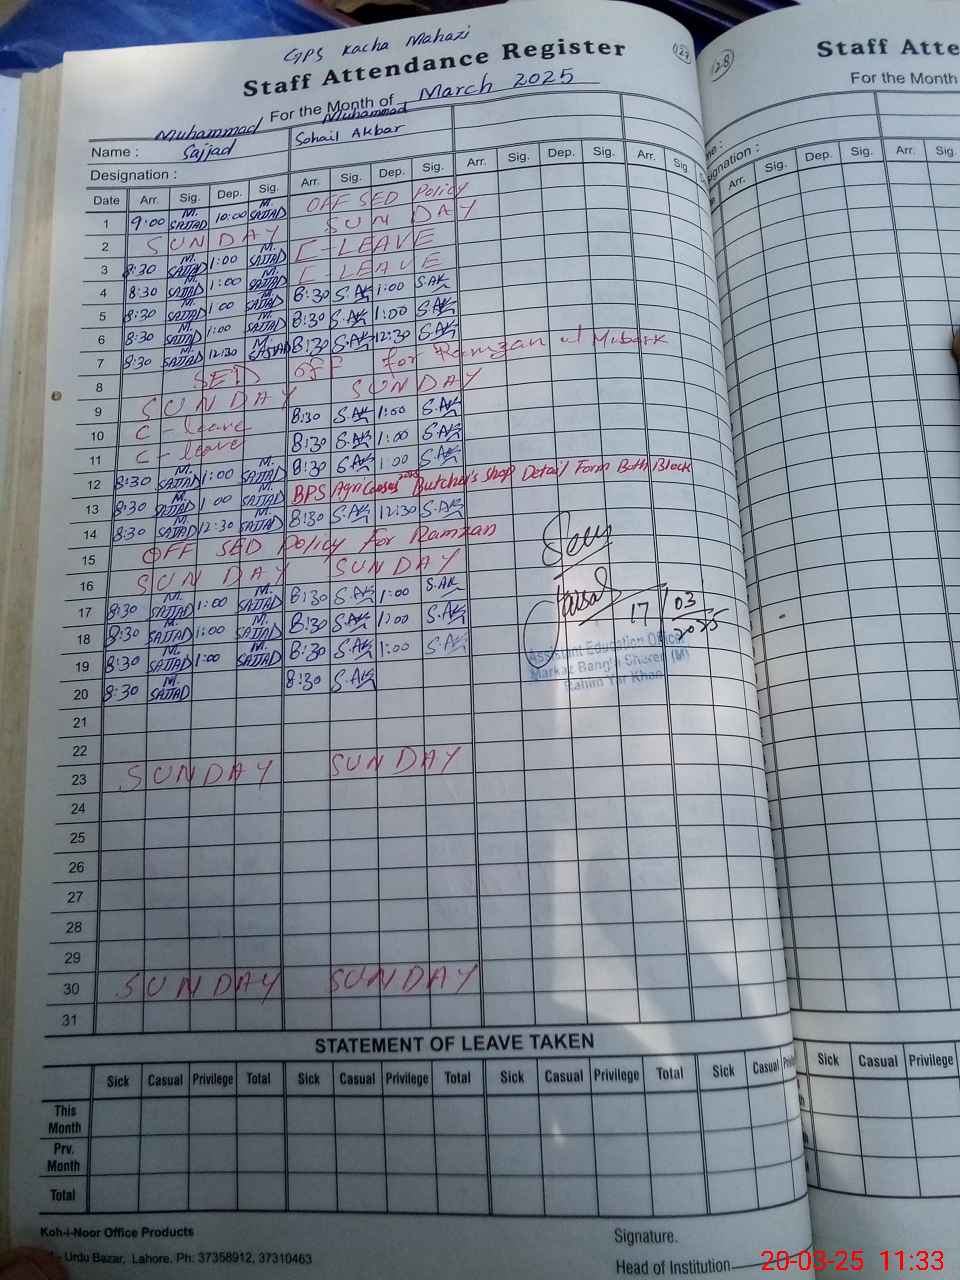 GPS Kacha Mahazi
Staff Attendance Register
For the Month of March 2025
127
Name : Muhammad Sajjad Muhammad Sohail Akbar
Designation :
Date Arr. Sig. Dep. Sig. Arr. Sig. Dep. Sig. Arr. Sig. Dep. Sig. Arr. Sig.
1 9:00 M. SAJJAD 10:00 M. SAJJAD OFF SED Policy
2 SUNDAY SUNDAY
3 8:30 M. SAJJAD 1:00 M. SAJJAD C-LEAVE
4 8:30 M. SAJJAD 1:00 M. SAJJAD C-LEAVE
5 8:30 M. SAJJAD 1:00 M. SAJJAD 8:30 S.AK 1:00 S.AK
6 8:30 M. SAJJAD 1:00 M. SAJJAD 8:30 S.AK 1:00 S.AK
7 8:30 M. SAJJAD 12:30 M. SAJJAD 8:30 S.AK 12:30 S.AK
8 SED OFF for Ramzan ul Mubark
9 SUNDAY SUNDAY
10 C-leave 8:30 S.AK 1:00 S.AK
11 C-leave 8:30 S.AK 1:00 S.AK
12 8:30 M. SAJJAD 1:00 M. SAJJAD 8:30 S.AK 1:00 S.AK
13 8:30 M. SAJJAD 1:00 M. SAJJAD BPS Agri Butcher's shop Detail Form Both Block
14 8:30 M. SAJJAD 12:30 M. SAJJAD 8:30 S.AK 12:30 S.AK
15 OFF SED Policy For Ramzan
16 SUNDAY SUNDAY
17 8:30 M. SAJJAD 1:00 M. SAJJAD 8:30 S.AK 1:00 S.AK
18 8:30 M. SAJJAD 1:00 M. SAJJAD 8:30 S.AK 1:00 S.AK
19 8:30 M. SAJJAD 1:00 M. SAJJAD 8:30 S.AK 1:00 S.AK
20 8:30 M. SAJJAD 8:30 S.AK
21
22
23 SUNDAY SUNDAY
24
25
26
27
28
29
30 SUNDAY SUNDAY
31
17/03/2025
Assistant Education Officer
Markaz Bangla Shareef (M)
Rahim Yar Khan
STATEMENT OF LEAVE TAKEN
Sick Casual Privilege Total Sick Casual Privilege Total Sick Casual Privilege Total Sick Casual
This Month
Prv. Month
Total
Koh-i-Noor Office Products
Urdu Bazar, Lahore. Ph: 37358912, 37310463
Signature.
Head of Institution
128
Staff Atte
For the Month
me :
signation :
Arr. Sig. Dep. Sig. Arr. Sig.
Sick Casual Privilege
20-03-25 11:33